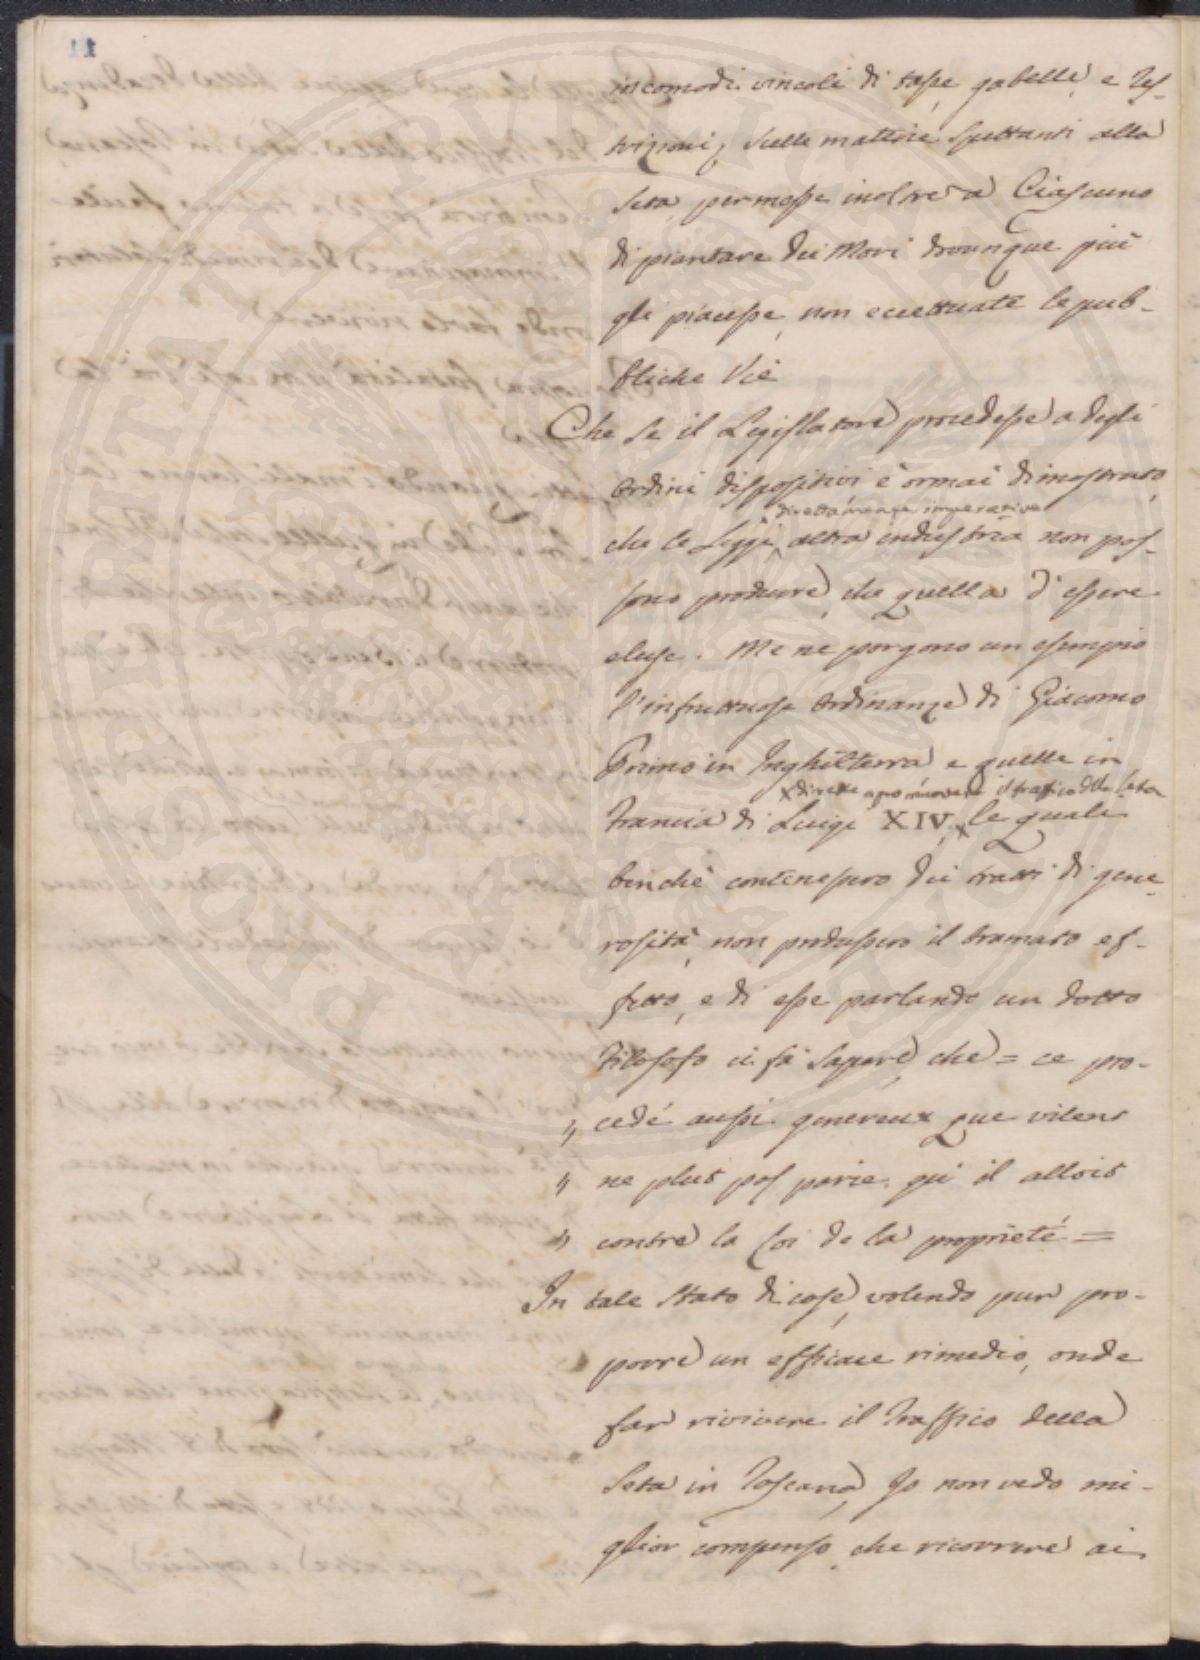 incomodi vincoli di tasse, gabelle, e res-
trizioni, sulle materie spettanti alla
seta, permesse inoltre a Ciascuno
di piantare dei Mori dovunque più
gli piacesse, non eccettuate le pub-
bliche Vie
Che se il Legislatore procedesse a degli
Ordini dispositivi è ormai dimostrato,
direttamente imperative
che le Leggi altra industria non pos-
sono produrre, che quella d'essere
eluse. Me ne porgono un esempio
l'infruttuose Ordinanze di Giacomo
Primo in Inghilterra e quelle in
x dirette a promuovere il traffico della Seta
Francia di Luigi XIV, x le quali
benchè contenessero dei tratti di gene-
rosità, non produssero il bramato ef-
fetto, e di esse parlando un dotto
Filosofo ci fà sapere, che = ce pro-
" cedé aussi genereux que vilent
" ne plut pas parce qu'il alloit
" contre la loi de la proprieté =
In tale Stato di cose, volendo pur pro-
porre un efficace rimedio, onde
far rivivere il Traffico della
Seta in Toscana, Io non vedo mi-
glior compenso, che ricorrere ai